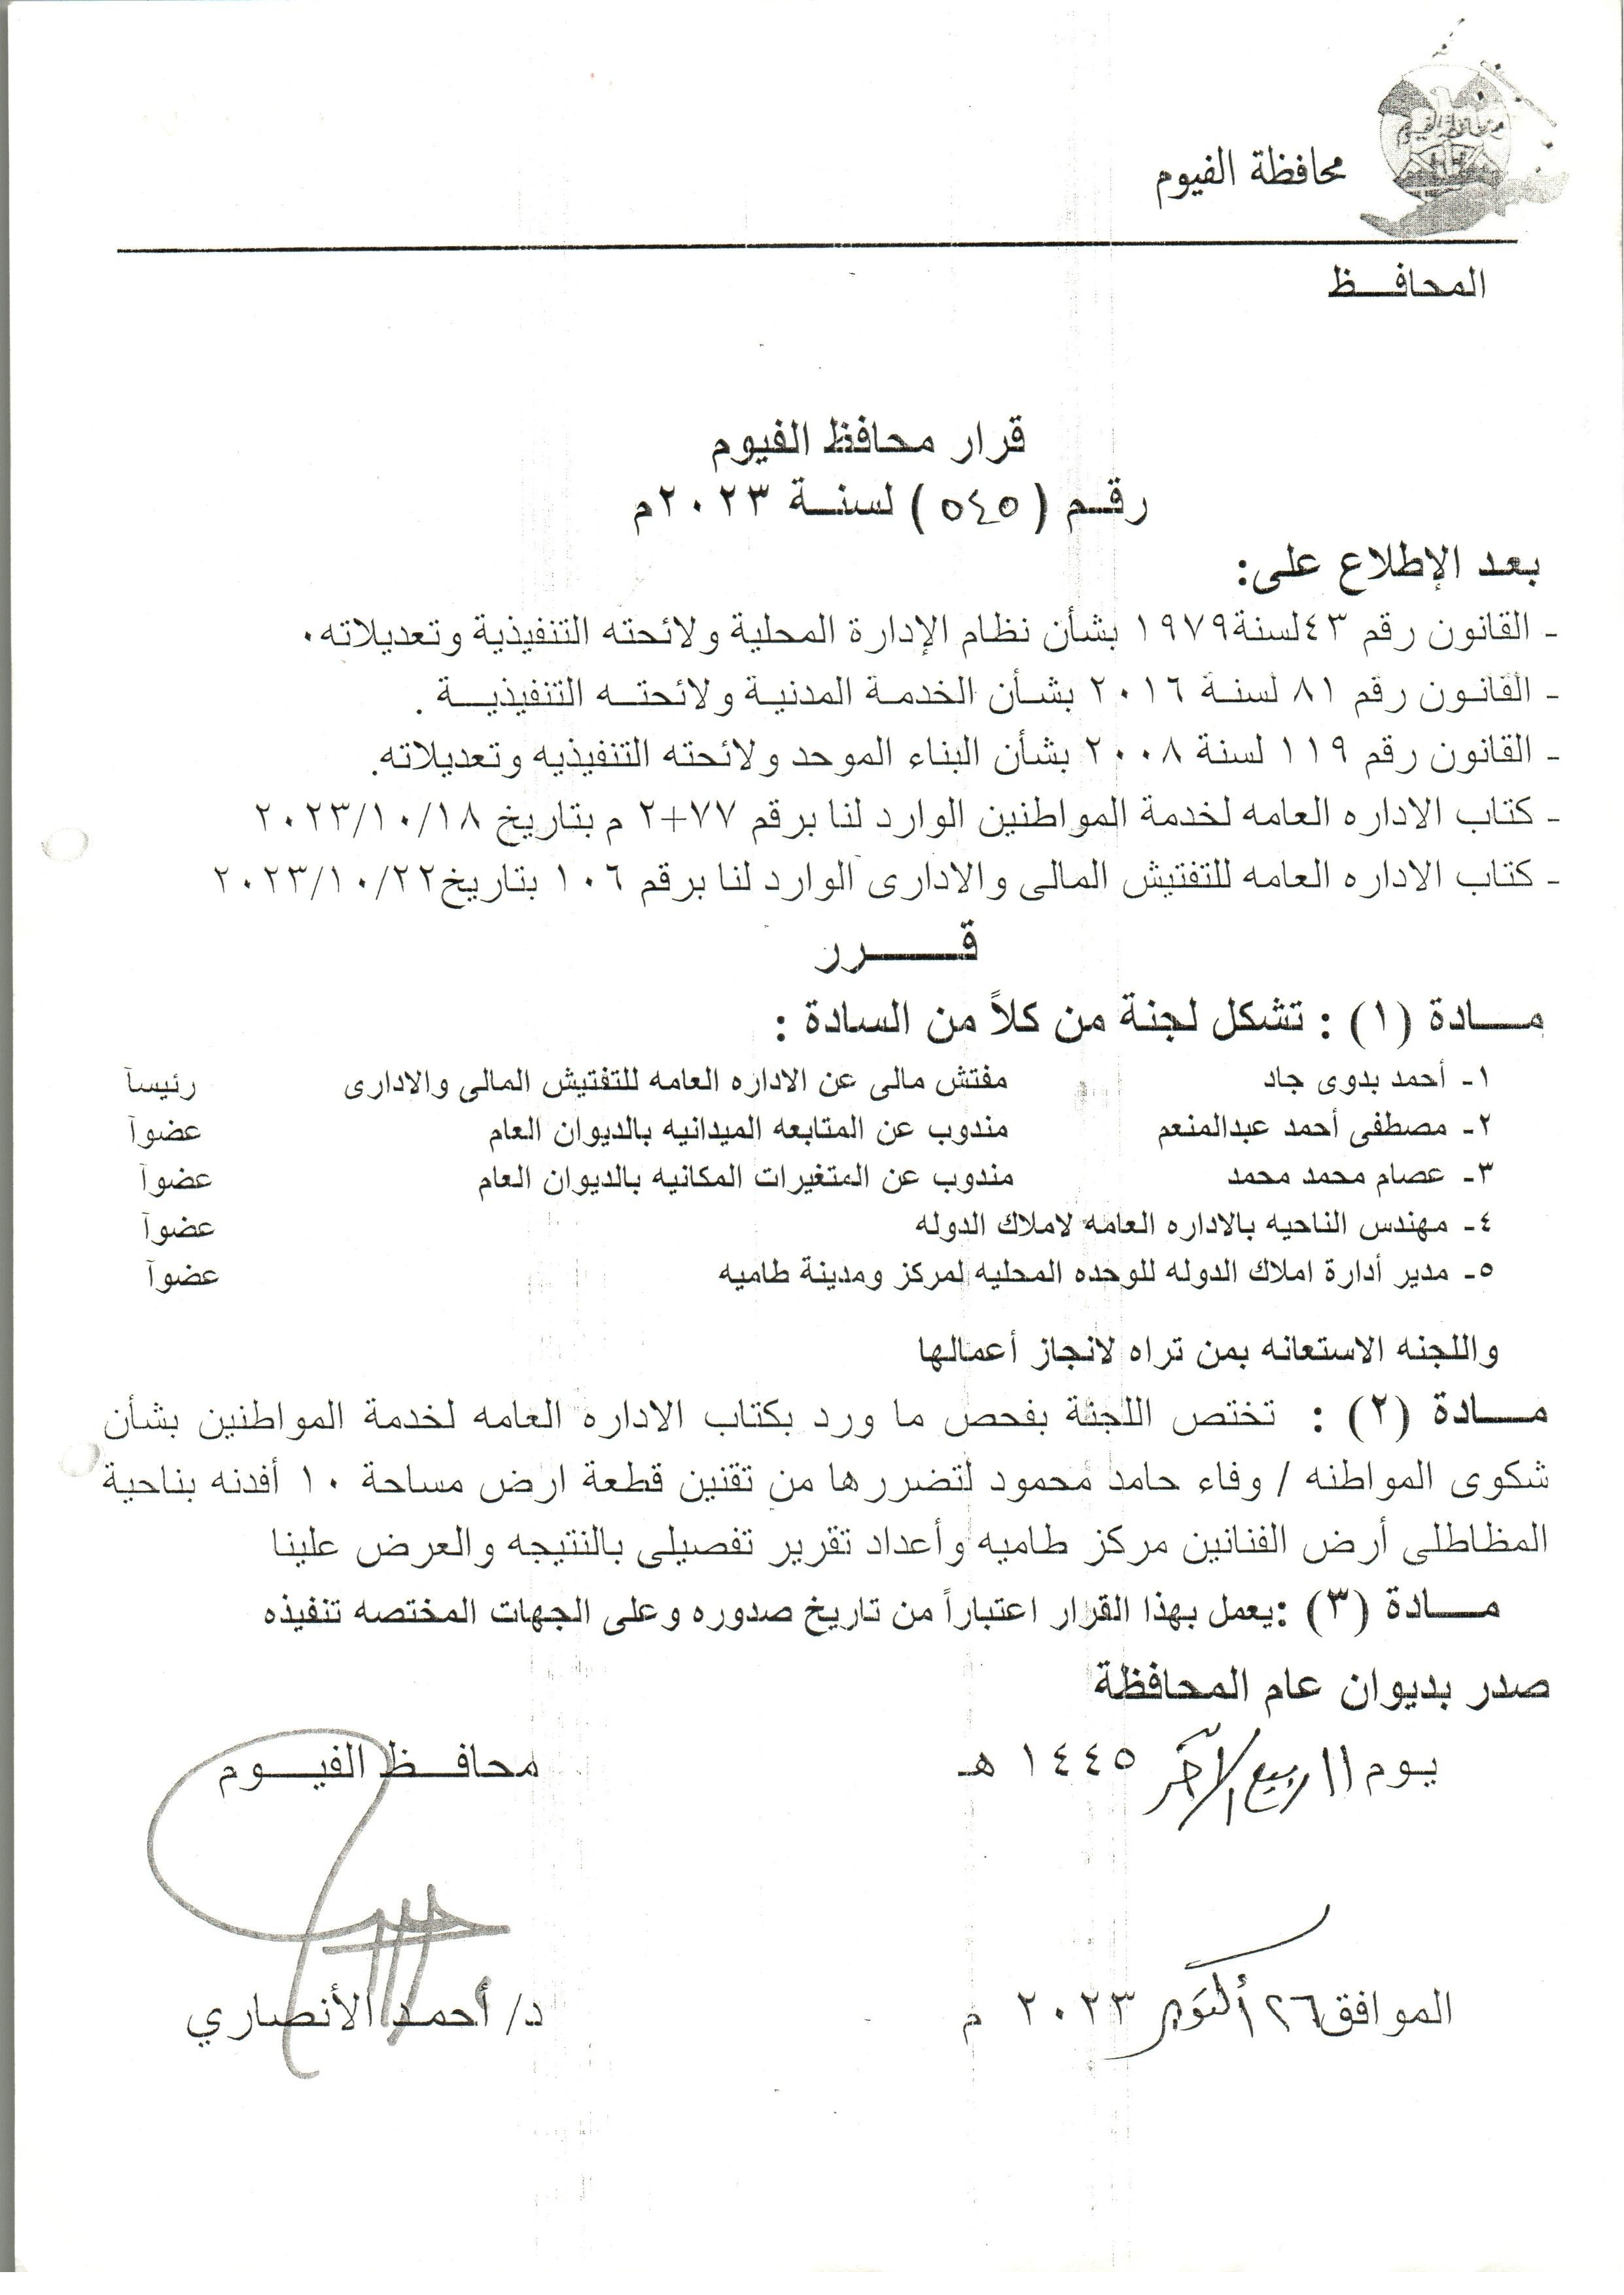 محافظة الفيوم
محافظة الفيوم
المحافـــظ
قرار محافظ الفيوم
رقـم ( ٥٤٥ ) لسنـة ٢٠٢٣م
بعد الإطلاع على:
- القانون رقم ٤٣لسنة١٩٧٩ بشأن نظام الإدارة المحلية ولائحته التنفيذية وتعديلاته٠
- القانون رقم ٨١ لسنة ٢٠١٦ بشأن الخدمة المدنية ولائحته التنفيذية .
- القانون رقم ١١٩ لسنة ٢٠٠٨ بشأن البناء الموحد ولائحته التنفيذيه وتعديلاته.
- كتاب الاداره العامه لخدمة المواطنين الوارد لنا برقم ٧٧+٢ م بتاريخ ٢٠٢٣/١٠/١٨
- كتاب الاداره العامه للتفتيش المالى والادارى الوارد لنا برقم ١٠٦ بتاريخ٢٠٢٣/١٠/٢٢
قـــــرر
مــــادة (١) : تشكل لجنة من كلاً من السادة :
١- أحمد بدوى جاد مفتش مالى عن الاداره العامه للتفتيش المالى والادارى رئيسآ
٢- مصطفى أحمد عبدالمنعم مندوب عن المتابعه الميدانيه بالديوان العام عضوآ
٣- عصام محمد محمد مندوب عن المتغيرات المكانيه بالديوان العام عضوآ
٤- مهندس الناحيه بالاداره العامه لاملاك الدوله عضوآ
٥- مدير أدارة املاك الدوله للوحده المحليه لمركز ومدينة طاميه عضوآ
واللجنه الاستعانه بمن تراه لانجاز أعمالها
مــــادة (٢) : تختص اللجنة بفحص ما ورد بكتاب الاداره العامه لخدمة المواطنين بشأن
شكوى المواطنه / وفاء حامد محمود لتضررها من تقنين قطعة ارض مساحة ١٠ أفدنه بناحية
المظاطلى أرض الفنانين مركز طاميه وأعداد تقرير تفصيلى بالنتيجه والعرض علينا
مــــادة (٣) :يعمل بهذا القرار اعتباراً من تاريخ صدوره وعلى الجهات المختصه تنفيذه
صدر بديوان عام المحافظة
يـوم ١١ ربيع الآخر ١٤٤٥ هـ
محافـــظ الفيــــوم
الموافق ٢٦ أكتوبر ٢٠٢٣ م
د/ أحمـد الأنصاري